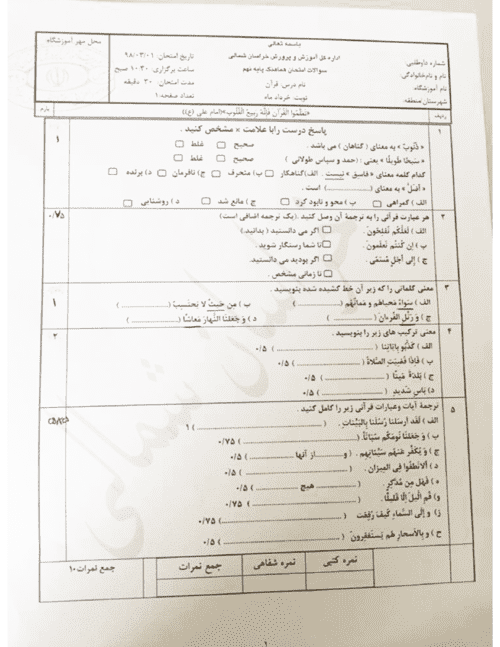 باسمه تعالی
اداره کل آموزش و پرورش خراسان شمالی
سوالات امتحان هماهنگ پایه نهم
نام درس: قرآن
نوبت خرداد ماه
شماره داوطلبی
نام و نام خانوادگی:
نام آموزشگاه
شهرستان/منطقه:
تاریخ امتحان: ۹۸/۰۳/۰۱
ساعت برگزاری: ۱۰:۳۰ صبح
مدت امتحان: ۳۰ دقیقه
تعداد صفحه: ۱
محل مهر آموزشگاه
ردیف
«تَعَلَّمُوا القُرآنَ فَإِنَّهُ رَبِیعُ القُلُوبِ»(امام علی (ع))
بارم
۱ پاسخ درست را با علامت × مشخص کنید . ۱
« ذُنُوبَ » به معنای ( گناهان ) می باشد . صحیح غلط
« سَبحًا طَویلًا » یعنی : (حمد و سپاس طولانی ) صحیح غلط
کدام کلمه معنای « فاسِق » نیست . الف)گناهکار ب) منحرف ج) نافرمان د) پرنده
« أضَلَّ » به معنای (..................) است .
الف ) گمراهی ب ) محو و نابود کرد ج ) مانع شد د ) روشنایی
۲ هر عبارت قرآنی را به ترجمهٔ آن وصل کنید. (یک ترجمه اضافی است) ۰/۷۵
الف ) لَعَلَّکُم تُفلِحُونَ . اگر می دانستید ( بدانید.)
ب ) إن کُنتُم تَعلَمُونَ . تا شما رستگار شوید .
ج ) إلی أجَلٍ مُسَمًّی . اگر بودید می دانستید.
تا زمانی مشخص .
۳ معنی کلماتی را که زیر آن خط کشیده شده بنویسید . ۱
الف ) سَواءً مَحیاهُم وَ مَماتُهُم (..................) ب ) مِن حَیثُ لا یَحتَسِبُ (..................)
ج ) وَ رَتِّلِ القُرءانَ (..................) د ) وَ جَعَلنَا النَّهارَ مَعاشًا (..................)
۴ معنی ترکیب های زیر را بنویسید . ۲
الف ) کَذَّبُو بِایاتِنا (..................) ۰/۵
ب ) فَإذا قُضِیَتِ الصَّلاةُ (..................) ۰/۵
ج ) بَلدَةً مَیتًا (..................) ۰/۵
د) بَأسٍ شَدیدٍ (..................) ۰/۵
۵ ترجمهٔ آیات وعبارات قرآنی زیر را کامل کنید .
الف ) لَقَد أرسَلنا رُسُلَنا بِالبَیِّناتِ . (..................) ۱
ب ) وَ جَعَلنا نَومَکُم سُباتًا. (..................) ۰/۷۵
ج ) وَ یُکَفِّر عَنهُم سَیِّئاتِهِم . ( و............از آنها ............) ۰/۵
د ) ألّا تَطغَوا فِی المِیزانِ . (..................) ۰/۵
ه ) فَهَل مِن مُدَّکِرٍ . (............ هیچ ............) ۰/۵
و) قُمِ الَّیلَ إلّا قَلیلًا . (..................) ۰/۷۵
ز) وَ إلَی السَّماءِ کَیفَ رُفِعَت (..................) ۰/۷۵
ح ) وَ بِالأسحارِ هُم یَستَغفِرُونَ (..................) ۰/۵
نمره کتبی نمره شفاهی جمع نمرات جمع نمرات ۱۰
۱